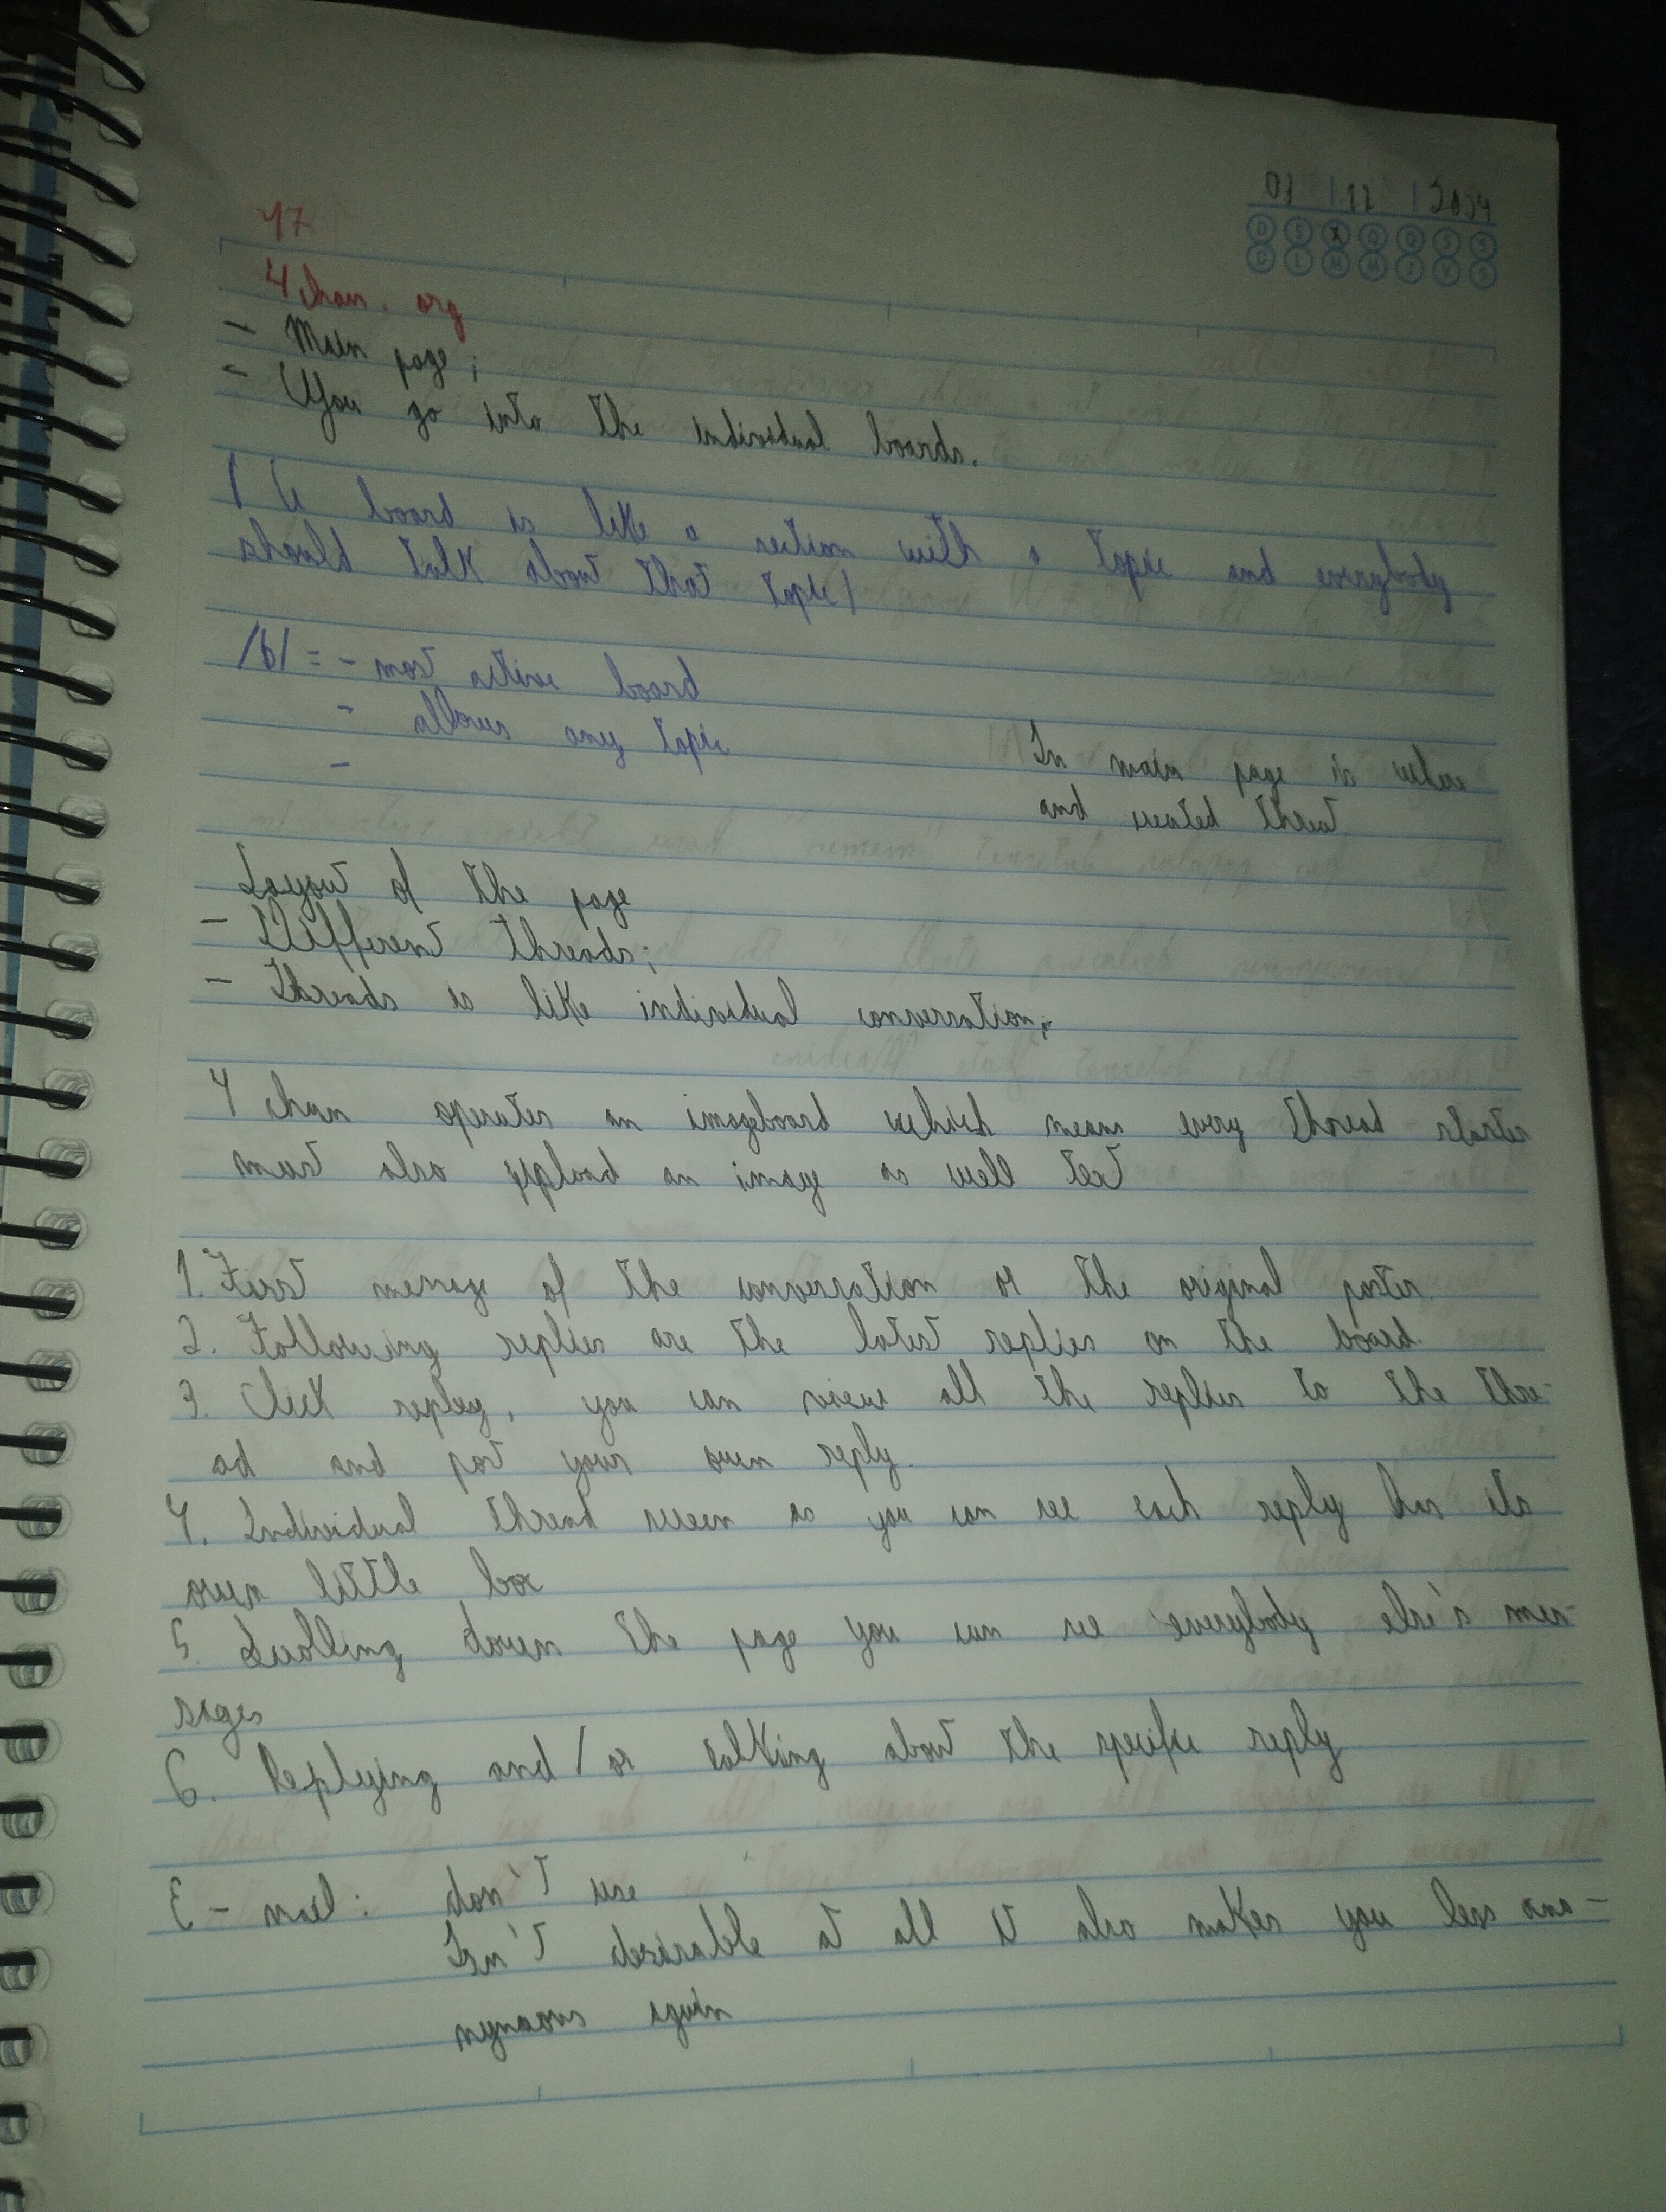 03 12 2024
D S X Q Q S S
D L M M J V S
47
4chan.org
- Main page;
- You go into the individual boards.
( A board is like a section with a topic and everybody
should talk about that topic)
/b/ = - most active board
- allows any topic
-
In main page is where
and created thread
Layout of the page
- Different threads;
- Threads is like individual conversation;
4chan operates an imageboard which means every thread starter
must also upload an image as well text
1. First message of the conversation or the original poster
2. Following replies are the latest replies on the board.
3. Click reply, you can view all the replies to the thre-
ad and post your own reply.
4. Individual thread screen as you can see each reply has its
own little box
5. Scrolling down the page you can see everybody else's mes-
sages
6. Replying and/or talking about the specific reply
E-mail: don't use
Isn't desirable at all It also makes you less ano-
nymous again